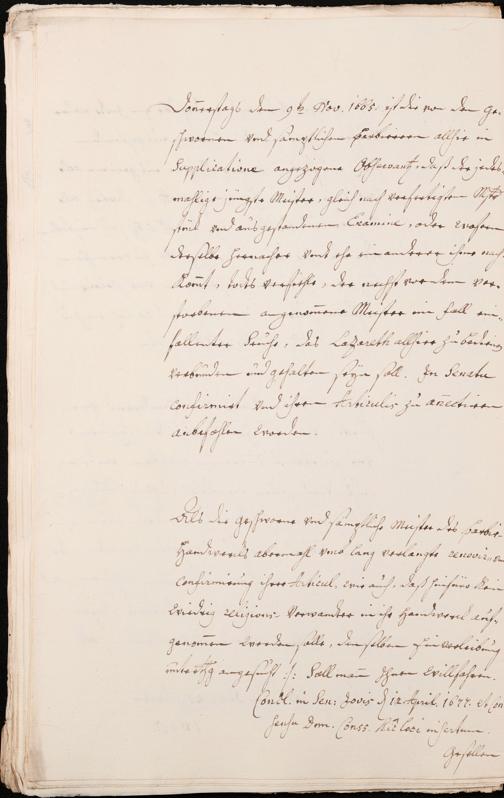 Donnerstags den 9t. Nov. 1665. ist die von den Ge-
schwornen vnd sämptlichen Barbierern allhie in
Supplicatione angezogene Observantz, daß der jedes-
mahlige jüngste Meister, gleich nach verfertigtem Mstr
stück vnd ausgestandenem Examine, oder wofern
derselbe hernacher vndt ehe ein anderer ihme nach-
kömt, todts verführe, der nechst vor dem ver-
storbenen angenommene Meister im fall ein-
fallenter Seuche, das Lazareth allhier zu bedienen
verbunden und gehalten seyn soll. In Senatu
confirmirt vnd ihren Articulis zu annectiren
anbefohlen worden.
Als die geschworne vnd sämptliche Meister des Barbier-
Handwercks abermahl vmb lang verlangte renovir- vnd
confirmirung ihrer Articul, wie auch, daß hinfüro kein
widrig religions-Verwandter in ihr Handwerck auf-
genommen werden solle, demselben einverleibung
angesucht ://: Soll mann Ihnen willfahren.
Concl. in Sen: Jovis d 12 April. 1677. et con
sensu Dom. Conss. hic loci insertum.
Gesellen